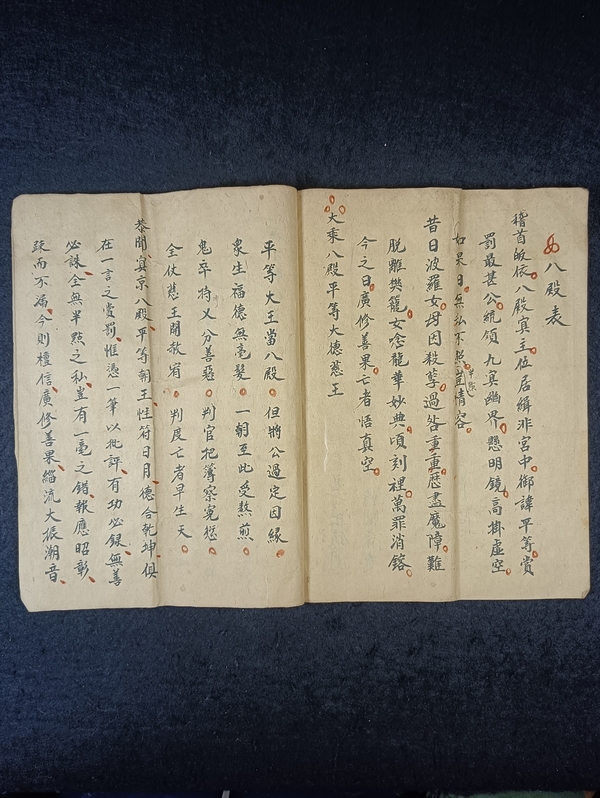 八殿表
稽首皈依八殿㝠主位居緝非宮中御諱平等賞
罰最甚公統領九㝠幽界懸明鏡高掛虛空
如果日無私不照豈情容
半戾
昔日波羅女母因殺孽過咎重重歷盡魔障難
脫離樊籠女念龍華妙典頃刻裡萬罪消鎔
今之日廣修善果亡者悟真空
大乘八殿平等大德慈王
平等大王當八殿 但將公過定因緣
衆生福德無毫髮 一朝至此受熬煎
鬼卒持义分善惡 判官把簿察寃愆
全仗慈王開赦宥 判度亡者早生天
恭聞㝠京八殿平等朝王性符日月德合乾坤俱
在一言之賞罰惟憑一筆以批評有功必録無善
必誅全無半點之私豈有一毫之錯報應昭彰
疎而不漏今則檀信廣修善果緇流大振潮音